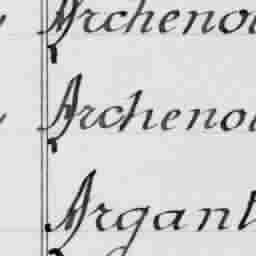 Archeno
Archeno
Argant